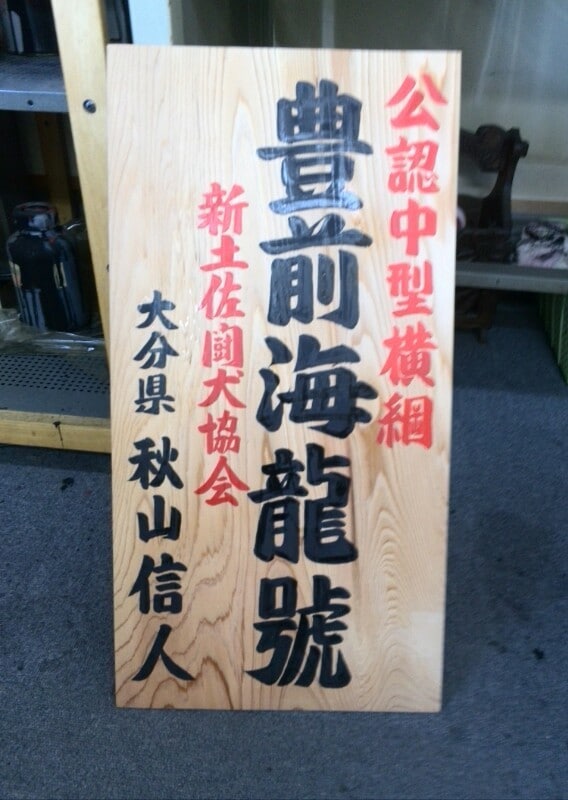 公認中型横綱
豊前海龍號
新土佐闘犬協会
大分県 秋山信人